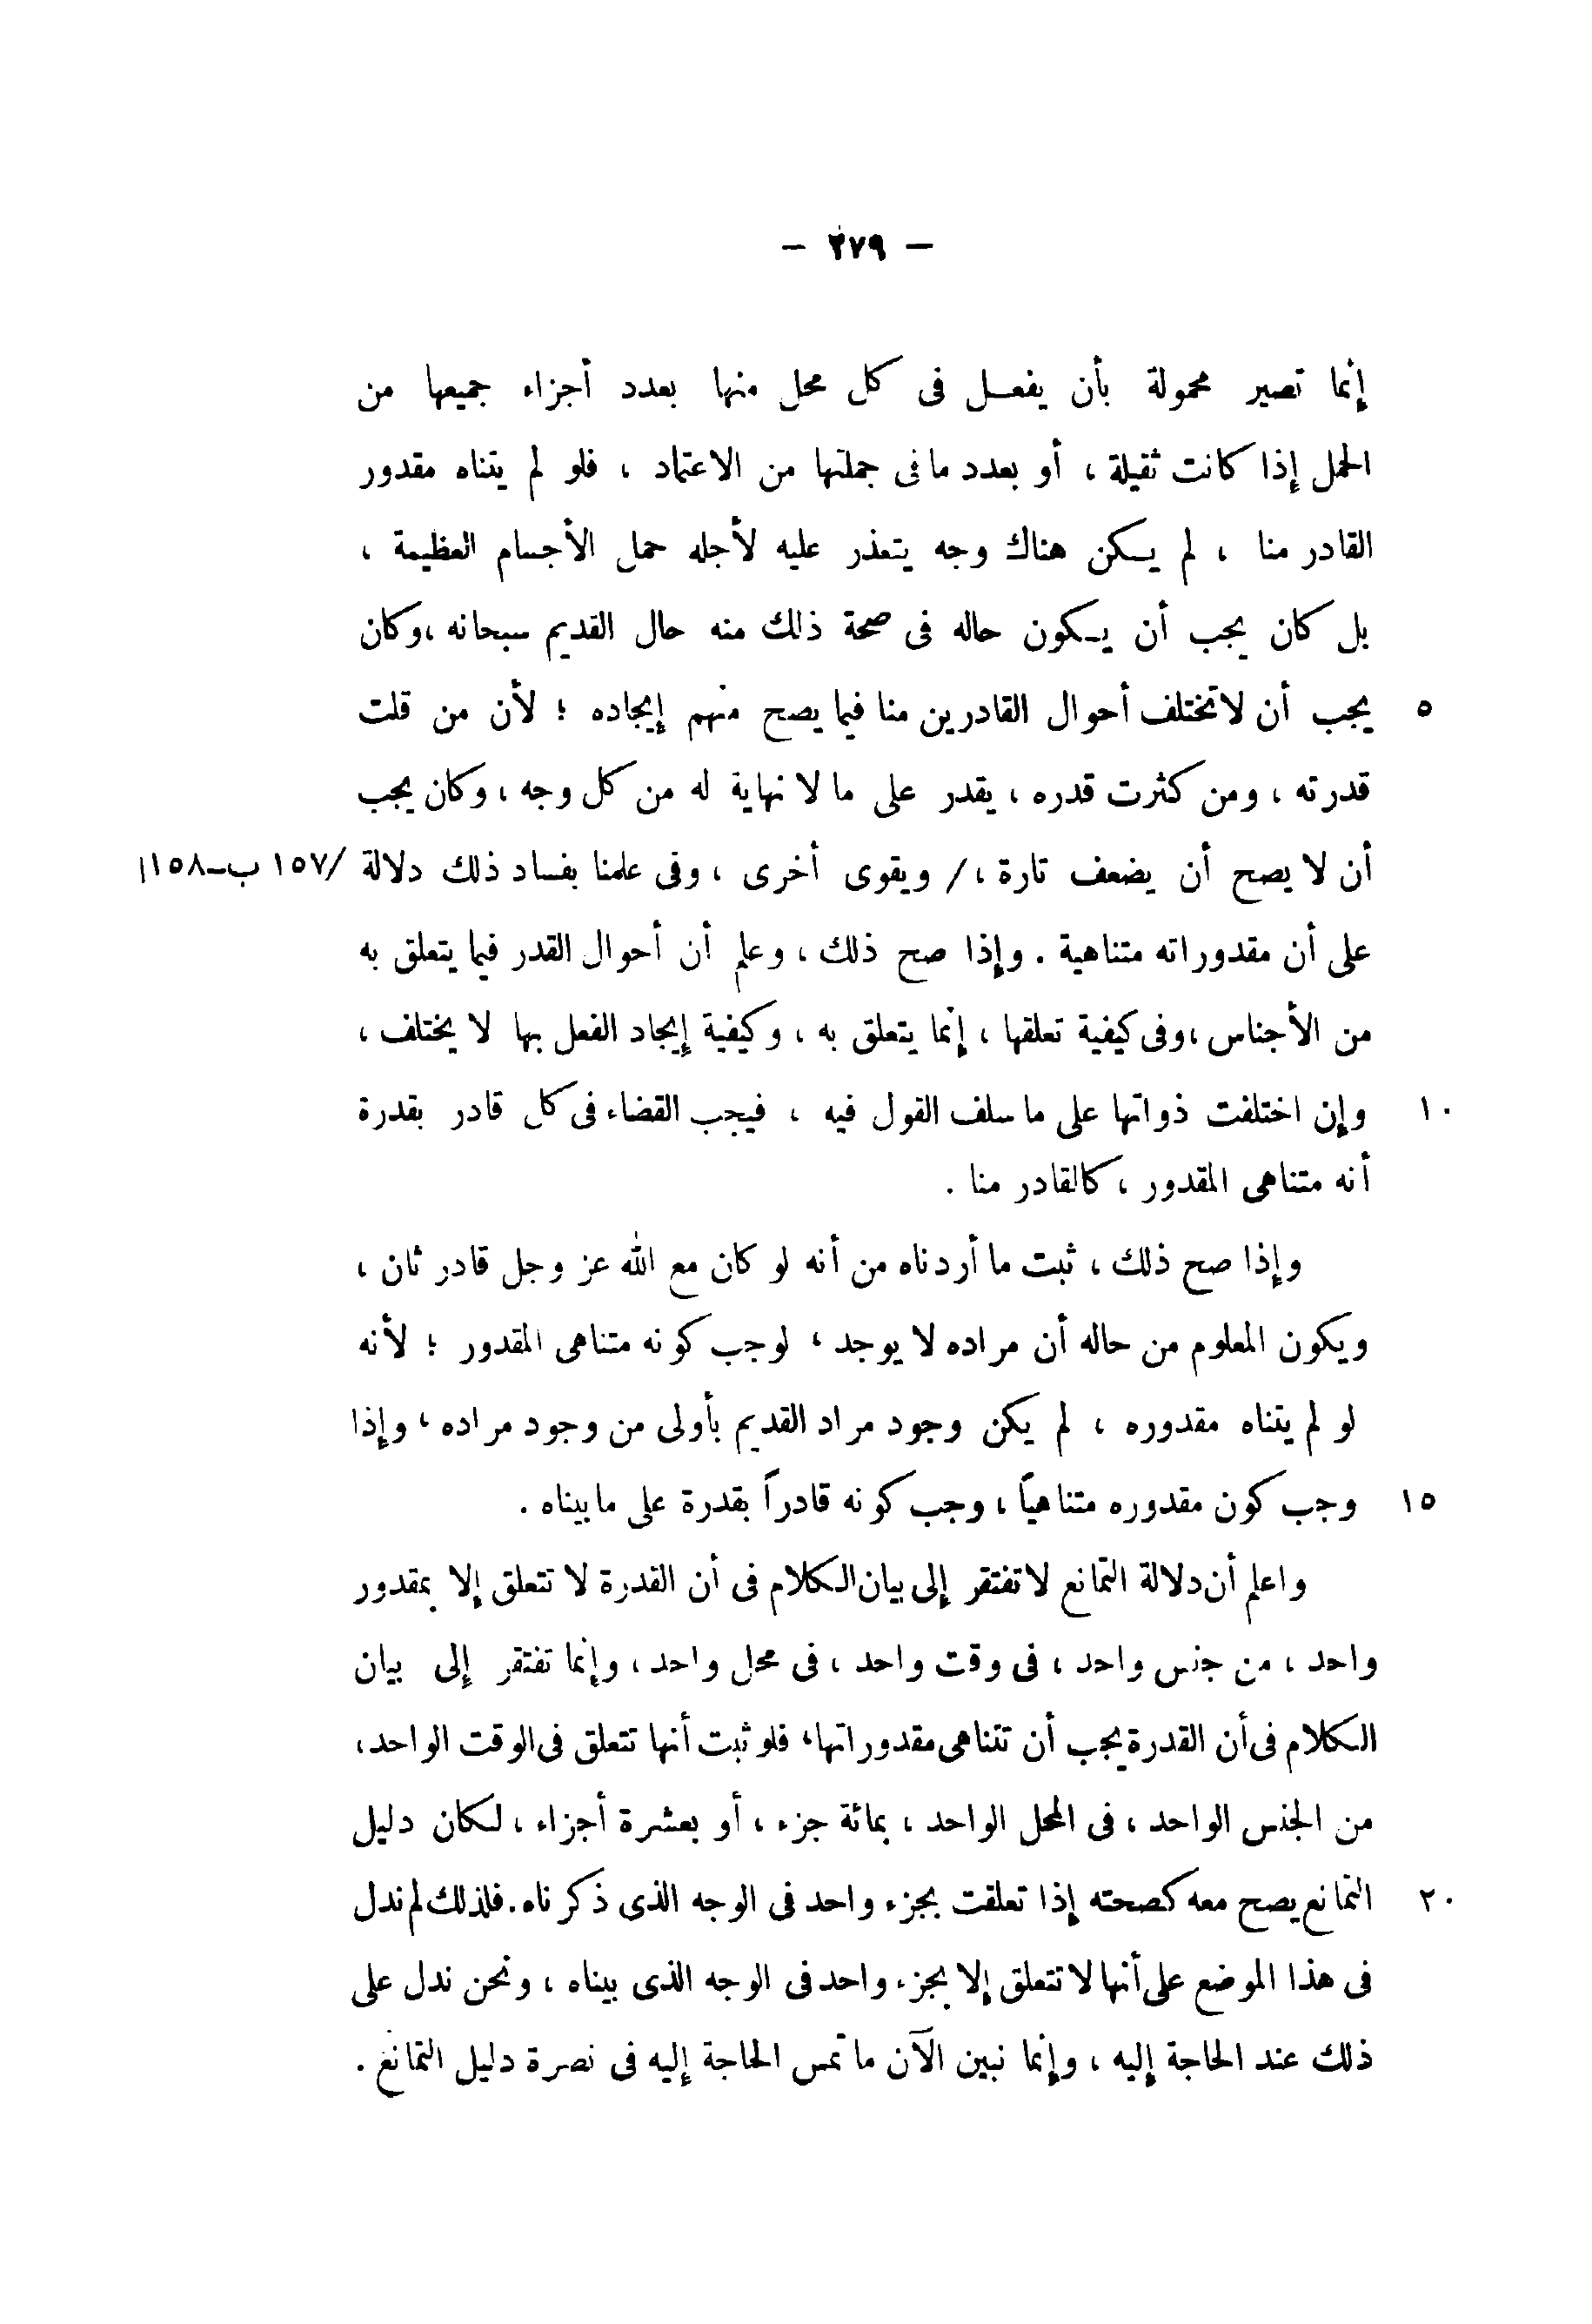 — ٢٧٩ —
إنما تصير محمولة بأن يفعـــل فى كل محل منها بعدد أجزاء جميعها من
الحمل إذا كانت ثقيلة ، أو بعدد ما فى جملتها من الاعتماد ، فلو لم يتناه مقدور
القادر منا ، لم يـكن هناك وجه يتعذر عليه لأجله حمل الأجسام العظيمة ،
بل كان يجب أن يـكون حاله فى صحة ذلك منه حال القديم سبحانه ، وكان
٥ يجب أن لا تختلف أحوال القادرين منا فيما يصح منهم إيجاده ؛ لأن من قلت
قدرته ، ومن كثرت قدره ، يقدر على ما لا نهاية له من كل وجه ، وكان يجب
أن لا يصح أن يضعف تارة ، / ويقوى أخرى ، وفى علمنا بفساد ذلك دلالة /١٥٧ ب–١٥٨ا
على أن مقدوراته متناهية . وإذا صح ذلك ، وعلم أن أحوال القدر فيما يتعلق به
من الأجناس ، وفى كيفية تعلقها ، إنما يتعلق به ، وكيفية إيجاد الفعل بها لا يختلف ،
١٠ وإن اختلفت ذواتها على ما سلف القول فيه ، فيجب القضاء فى كل قادر بقدرة
أنه متناهى المقدور ، كالقادر منا .
وإذا صح ذلك ، ثبت ما أردناه من أنه لو كان مع الله عز وجل قادر ثان ،
ويكون المعلوم من حاله أن مراده لا يوجد ، لوجب كونه متناهى المقدور ؛ لأنه
لو لم يتناه مقدوره ، لم يكن وجود مراد القديم بأولى من وجود مراده ، وإذا
١٥ وجب كون مقدوره متناهياً ، وجب كونه قادراً بقدرة على ما بيناه .
واعلم أن دلالة التمانع لا تفتقر إلى بيان الـكلام فى أن القدرة لا تتعلق إلا بمقدور
واحد ، من جنس واحد ، فى وقت واحد ، فى محل واحد ، وإنما تفتقر إلى بيان
الـكلام فى أن القدرة يجب أن تتناهى مقدوراتها ، فلو ثبت أنها تتعلق فى الوقت الواحد ،
من الجنس الواحد ، فى المحل الواحد ، بمائة جزء ، أو بعشرة أجزاء ، لـكان دليل
٢٠ التمانع يصح معه كصحته إذا تعلقت بجزء واحد فى الوجه الذى ذكرناه . فلذلك لم ندل
فى هذا الموضع على أنها لا تتعلق إلا بجزء واحد فى الوجه الذى بيناه ، ونحن ندل على
ذلك عند الحاجة إليه ، وإنما نبين الآن ما تمس الحاجة إليه فى نصرة دليل التمانع .